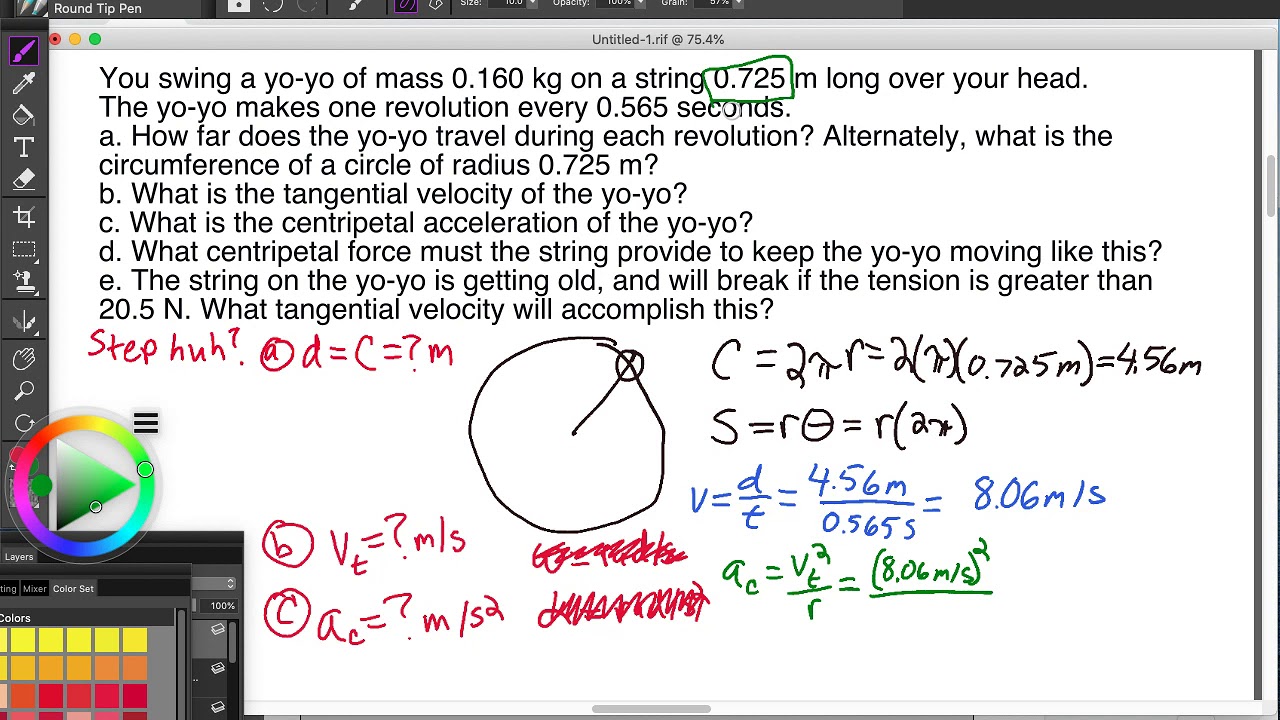 Round Tip Pen Size: 10.0 Opacity: 100% Grain: 57%
Untitled-1.rif @ 75.4%
You swing a yo-yo of mass 0.160 kg on a string 0.725 m long over your head.
The yo-yo makes one revolution every 0.565 seconds.
a. How far does the yo-yo travel during each revolution? Alternately, what is the
circumference of a circle of radius 0.725 m?
b. What is the tangential velocity of the yo-yo?
c. What is the centripetal acceleration of the yo-yo?
d. What centripetal force must the string provide to keep the yo-yo moving like this?
e. The string on the yo-yo is getting old, and will break if the tension is greater than
20.5 N. What tangential velocity will accomplish this?
Step huh? ⓐ d = C = ? m
C = 2πr = 2(π)(0.725m) = 4.56m
S = rθ = r(2π)
v = d/t = 4.56m/0.565s = 8.06m/s
ⓑ v_t = ? m/s
a_c = v_t²/r = (8.06m/s)²
ⓒ a_c = ? m/s²
Layers
ting Mixer Color Set
100%
Colors